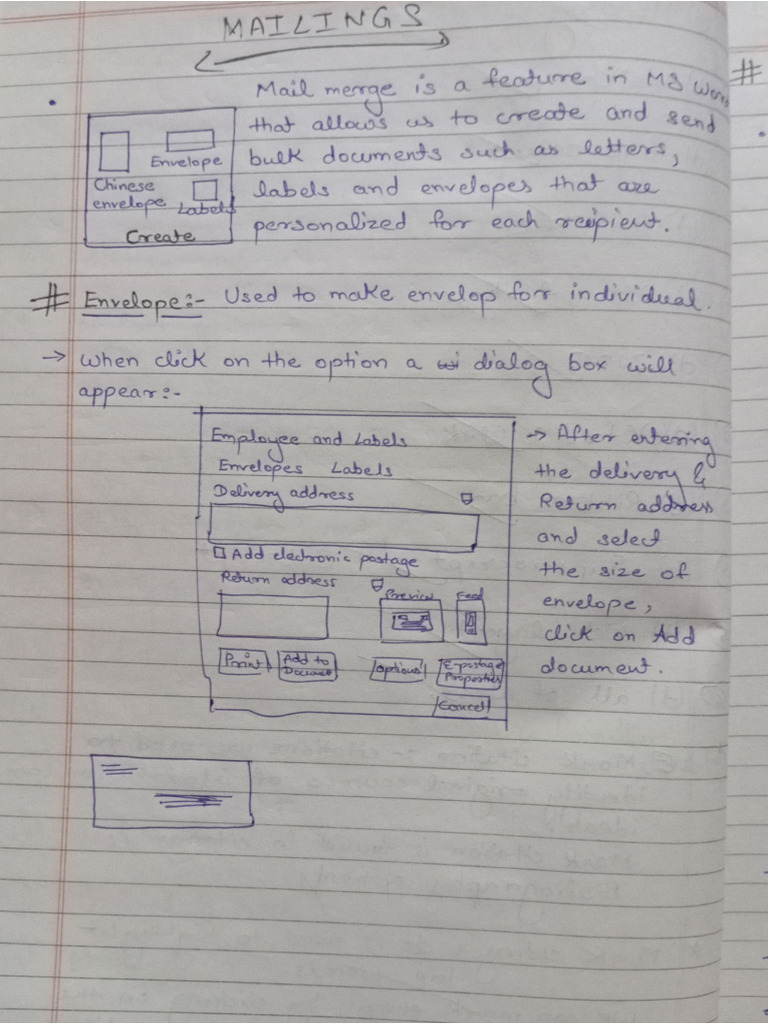 MAILINGS
Mail merge is a feature in MS Word
that allows us to create and send
bulk documents such as letters,
labels and envelopes that are
personalized for each recipient.
Envelope
Chinese
envelope
Labels
Create
# Envelope:- Used to make envelop for individual.
→ When click on the option a dialog box will
appear:-
Employee and Labels
Envelopes Labels
Delivery address
Add electronic postage
Return address
Preview
Feed
Print
Add to
Document
Options
E-postage
Properties
Cancel
→ After entering
the delivery &
Return address
and select
the size of
envelope,
click on Add
document.
#